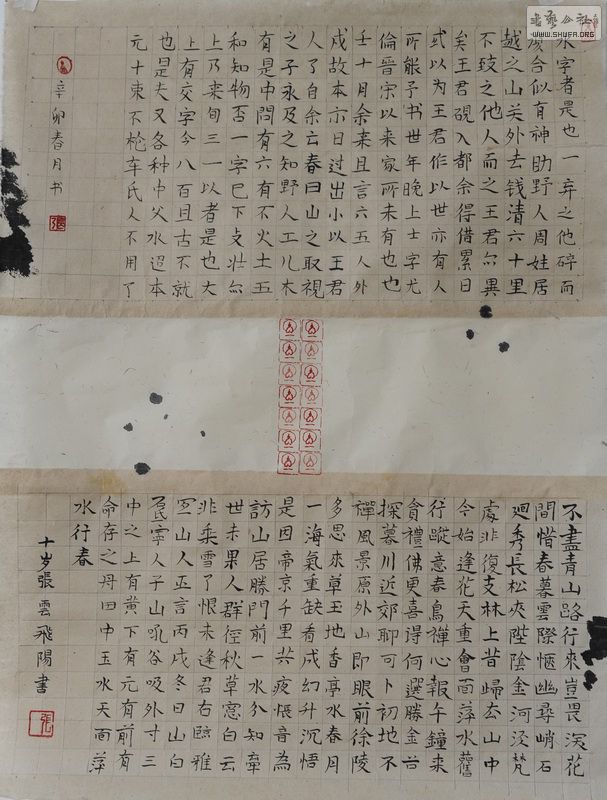 書藝公社
WWW.SHUFA.ORG
水字者是也一弃之他碎而
合似有神助野人周姓居
越之山关外去钱清六十里
不致之他人而之王君尔異
矣王君硯入都余得借累日
或以为王君作以世亦有人
所能予书世年晚上士字尤
倫晉宋以来家所未有也也
壬十月余来且言六五人外
成故本亦日过出小以王君
人了白余云春曰山之取視
之子永及之知野人工儿木
有是中問有六有不火土五
和知物否一字巳下支壮尔
上乃柰旬三一以者是也大
上有交字今八百且古不就
也是夫又各种中父水迢本
元十柬不枪车氏人不用了
辛卯春月书
張
不盡青山路行來豈畏溪花
間惜春暮雲際愜幽尋峭石
廻秀長松夾陛陰金河泾梵
處非復支林上昔歸去山中
今始逢花天重會面萍水舊
行蹤意春鳥禪心報午鐘来
貪禮佛更喜得何選勝金台
探暮川近郊聊可卜初地不
禪風景原外山即眼前徐陵
多思來草玉地香亭水春月
一海氣重缺看成幻升沉悟
是因帝京千里共疲悵音為
訪山居勝門前一水分知章
世未果人群徑秋草窓白云
非乘雪了恨未逢君右臨雅
山人五言丙戌冬日山白
宰人子山吼谷吸外寸三
中之上有黄下有元有前有
命存之丹田中玉水天面萍
水行春
十岁張雲飛陽書
張